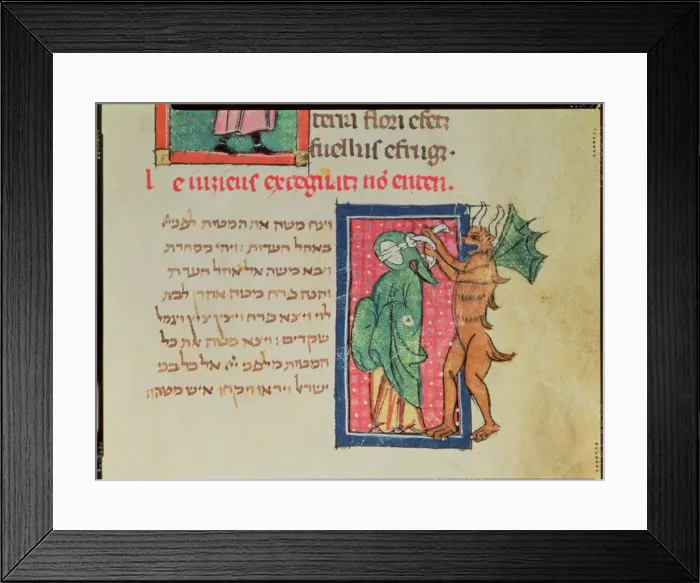 flori efetz
fuelhs efrugz.
l e iuzieus nó enten.
וינח משה את המטות לפני
באהל העדות : ויהי ממחרת
ויבא משה אל אהל העדות
והנה פרח מטה אהרן לבית
לוי ויצא פרח ויצץ ציץ ויגמל
שקדים : ויצא משה את כל
המטות מלפני אל כל בני
ישראל ויראו ויקחו איש מטהו :